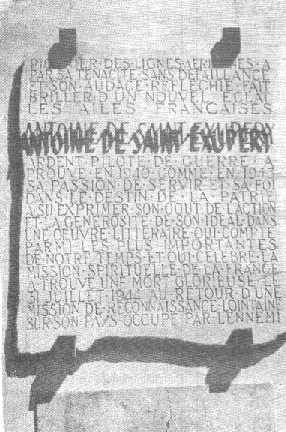 PIONNIER·DES·LIGNES·AERIENNES·A
PAR·SA·TENACITE·SANS·DEFAILLANCE
ET·SON·AUDACE·REFLECHIE·FAIT
BRILLER·D'UN·NOUVEL·ECLAT
LES AILES FRANCAISES
ANTOINE·DE·SAINT·EXUPERY
ARDENT PILOTE DE GUERRE A
PROUVE·EN·1940·COMME·EN·1943
SA·PASSION·DE·SERVIR·ET·SA·FOI
DANS·LE·DESTIN·DE·LA·PATRIE
A·SU·EXPRIMER·SON·GOUT·DE·L'ACTION
ET·LA·GENEROSITE·DE·SON·IDEAL·DANS
UNE·ŒUVRE·LITTERAIRE·QUI·COMPTE
PARMI·LES·PLUS·IMPORTANTES
DE·NOTRE·TEMPS·ET·QUI·CELEBRE·LA
MISSION·SPIRITUELLE·DE·LA·FRANCE
A·TROUVE·UNE·MORT·GLORIEUSE·LE
31·JUILLET·1944·AU·RETOUR·D'UNE
MISSION·DE·RECONNAISSANCE·LOINTAINE
SUR·SON·PAYS·OCCUPE·PAR·L'ENNEMI